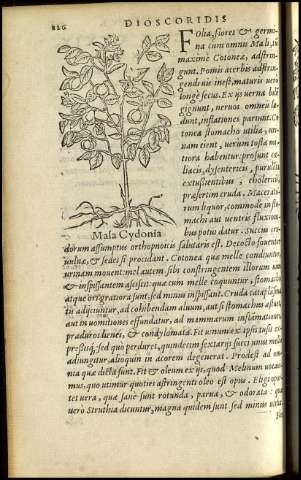 DIOSCORIDIS
Folia, flores & germi-
na cum omni Mali, tũ
maximè Cotoneæ, adstrin-
gunt. Pomis acerbis adstrin-
gendi
longè secus. Ex ijs uerna
gignunt, neruos omneis
dunt, inflationes pariunt. Co-
tonea stomacho utilia,
nam cient, uerum tosta
tiora habentur. prosunt cœ-
liacis, dysentericis, purulẽta
extussientibus, cholericis
præsertim cruda. Macerati-
rum liquor, commodè in sto-
machi aut uentris fluxioni-
bus potui datur. Succus
Mala Cydonia
dorum assumptus orthopnoicis salutaris est. Decocto fouentur
uuluæ, & sedes si procidant. Cotonea quæ melle condiuntur,
urinam mouent: mel autem sibi constringentem illorum uim
& inspissantem asciscit: quæ cum melle coquuntur, stomacho
atque ori gratiora sunt: sed minus inspissant. Cruda cataplasma-
tis adijciuntur, ad cohibendam aluum, aut si stomachus æstuet,
aut in uomitiones effundatur, ad mammarum inflammationes,
præduros lienes, & condylomata. Fit uinum ex ipsis tusis ex-
pressisq́;, sed quò perduret, quindecim sextarijs succi unus mellis
adiungitur, alioquin in acorem degenerat. Prodest ad om-
nia quæ dicta sunt. Fit & oleum ex ijs, quod Melinum uoca-
mus, quo utimur quoties astringenti oleo est opus. Eligi opor-
tet uera, quæ sanè sunt rotunda, parua, & odorata: quæ
uerò Struthia dicuntur, magna quidem sunt sed minus